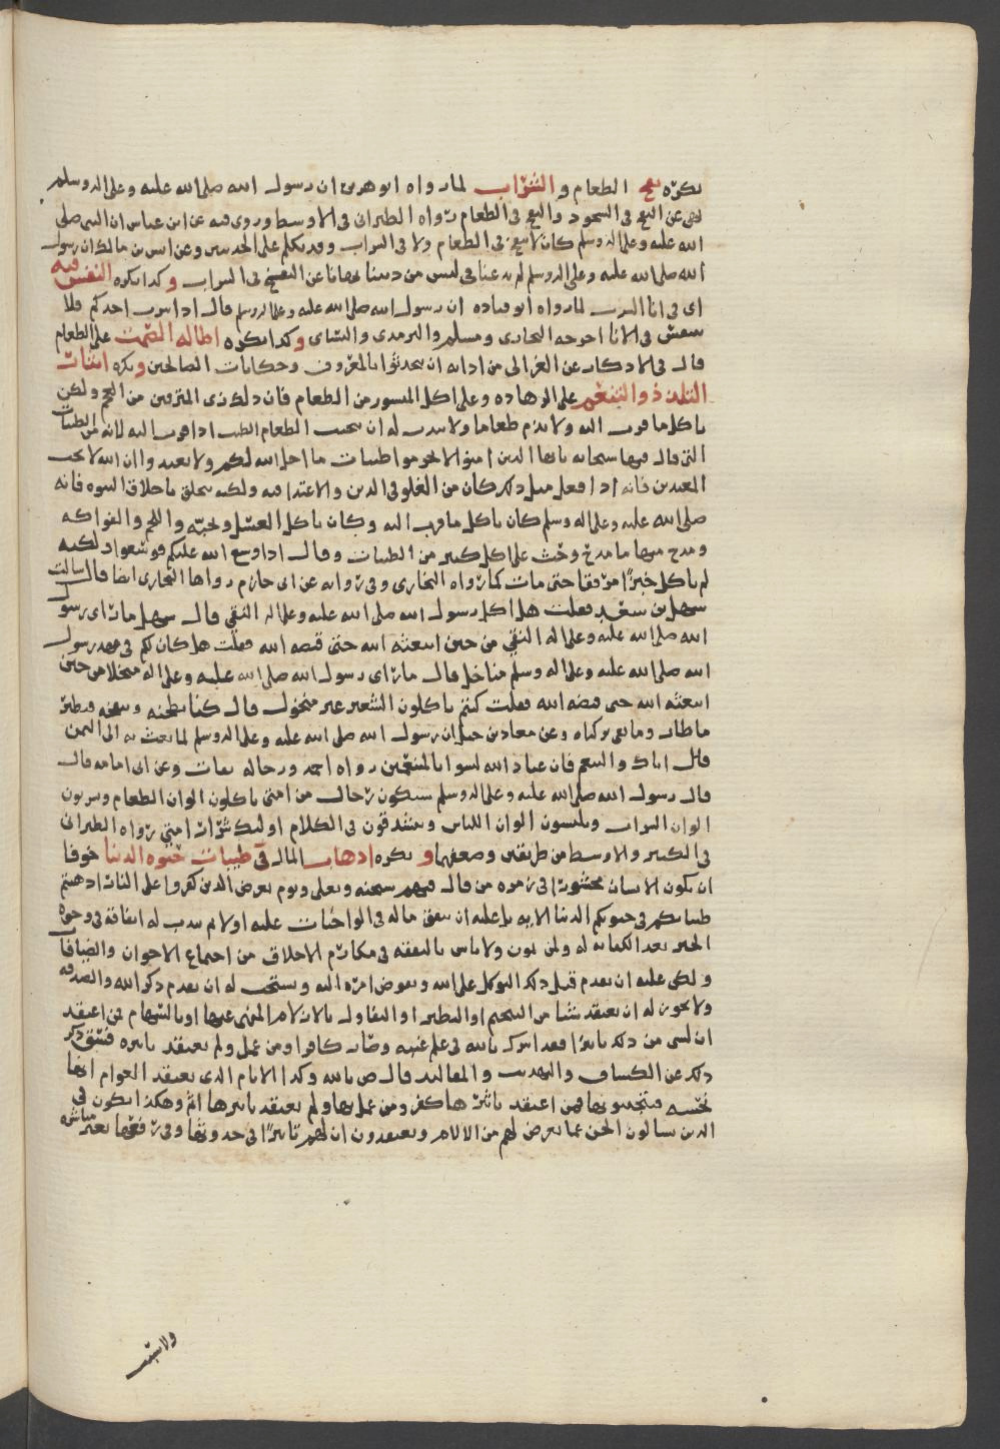 يكره نفخ الطعام والشراب لما رواه ابو هريرة ان رسول الله صلى الله عليه وعلى اله وسلم
نهى عن النفخ في السجود والنفخ في الطعام رواه الطبراني في الاوسط وروى فيه عن ابن عباس ان النبي صلى
الله عليه وعلى اله وسلم كان لا ينفخ في الطعام ولا في الشراب وقد تكلم على الحديثين وعن انس بن مالك ان رسول
الله صلى الله عليه وعلى اله وسلم لم عن النفخ في الشراب وكذا يكره التنفس فيه
اي في انا الشرب لما رواه ابو قتاده ان رسول الله صلى الله عليه وعلى اله وسلم قال اذا شرب احدكم فلا
يتنفس في الانا اخرجه البخاري ومسلم والترمذي والنساي وكذا يكره اطاله الصمت على الطعام
قال في الاذكار عن الغزالي من ادابه ان يتحدثوا بالمعروف وحكايات الصالحين ويكره
التلذذ والتنعم على الزهاده وعلى اكل الميسور من الطعام فان ذلك زي المترفين من العجم ولكن
ياكل ما قرب اليه ولا يذم طعاما ولا يندب له ان يتجنب الطعام الطيب اذا قرب اليه لانه من الطيبات
التي قال فيها سبحانه يايها الذين امنوا لا تحرموا طيبات ما احل الله لكم ولا تعتدوا ان الله لا يحب
المعتدين فانه اذا فعل مثل ذلك كان من الغلو في الدين والاعتدا فيه ولكنه يتخلق باخلاق النبوه فانه
صلى الله عليه وعلى اله وسلم كان ياكل ما قرب اليه وكان ياكل العسل ويحبه واللحم والفواكه
ومدح منها ما مدح وحث على اكل كثير من الطيبات وقال اذا وسع الله عليكم فوسعوا ولكنه
لم ياكل خبزا مرققا حتى مات كما رواه البخاري وفي روايه عن ابي حازم رواها البخاري ايضا قال سالت
سهل بن سعد فقلت هل اكل رسول الله صلى الله عليه وعلى اله النقي قال سهل ما راى رسول
الله صلى الله عليه وعلى اله النقي من حين ابتعثه الله حتى قبضه الله فقلت هل كان لكم في عهد رسول
الله صلى الله عليه وعلى اله وسلم مناخل قال ما راى رسول الله صلى الله عليه وعلى اله منخلا من حين
ابتعثه الله حتى قبضه الله فقلت كيف كنتم تاكلون الشعير غير منخول قال كنا نطحنه وننفخه فيطير
ما طار وما بقي ثريناه وعن معاذ بن جبل ان رسول الله صلى الله عليه وعلى اله وسلم لما بعث به الى اليمن
قال اياك والتنعم فان عباد الله ليسوا بالمتنعمين رواه احمد ورجاله ثقات وعن ابي امامه قال
قال رسول الله صلى الله عليه وعلى اله وسلم سيكون رجال من امتي ياكلون الوان الطعام ويشربون
الوان الشراب ويلبسون الوان اللباس ويتشدقون في الكلام اوليك شرار امتي رواه الطبراني
في الكبير والاوسط من طريقين وضعفهما ويكره اذهاب المال في طيبات حيوه الدنيا خوفا
ان يكون الانسان محشورا في زمره من قال فيهم سبحنه وتعلى ويوم يعرض الذين كفروا على النار اذهبتم
طيباتكم في حيوتكم الدنيا الايه بل عليه ان ينفق ماله في الواجبات عليه او لا ثم يندب له انفاقه في وجوه
الخير بعد الكفايه له ولمن يمون ولا باس بالنفقه في مكارم الاخلاق من اجتماع الاخوان والضيافات
ولكن عليه ان يقدم قبل ذلك التوكل على الله ويفوض امره اليه ويستحب له ان يقدم ذكر الله والصدقه
ولا يجوز له ان يعتقد شيا من التنجيم او التطير او التفاول بالازلام المنهي عنها او بالسهام فمن اعتقد
ان لشي من ذلك تاثيرا فقد اشرك بالله في علم غيبه وصار كافرا ومن عمل ولم يعتقد تاثيره فسق ذكر
ذلك عن الكشاف والتهذيب قال ص بالله وكذا الايام الذي يعتقد العوام انها
نحسه فيتجنبونها فمن اعتقد تاثيرها كفر ومن عمل بها ولم يعتقد تاثيرها اثم وهكذا يكون في
الذين يسالون الجن عما يعرض لهم من الالام ويعتقدون ان لهم تاثيرا في حدوثها وفي رفعها بغير مباشره